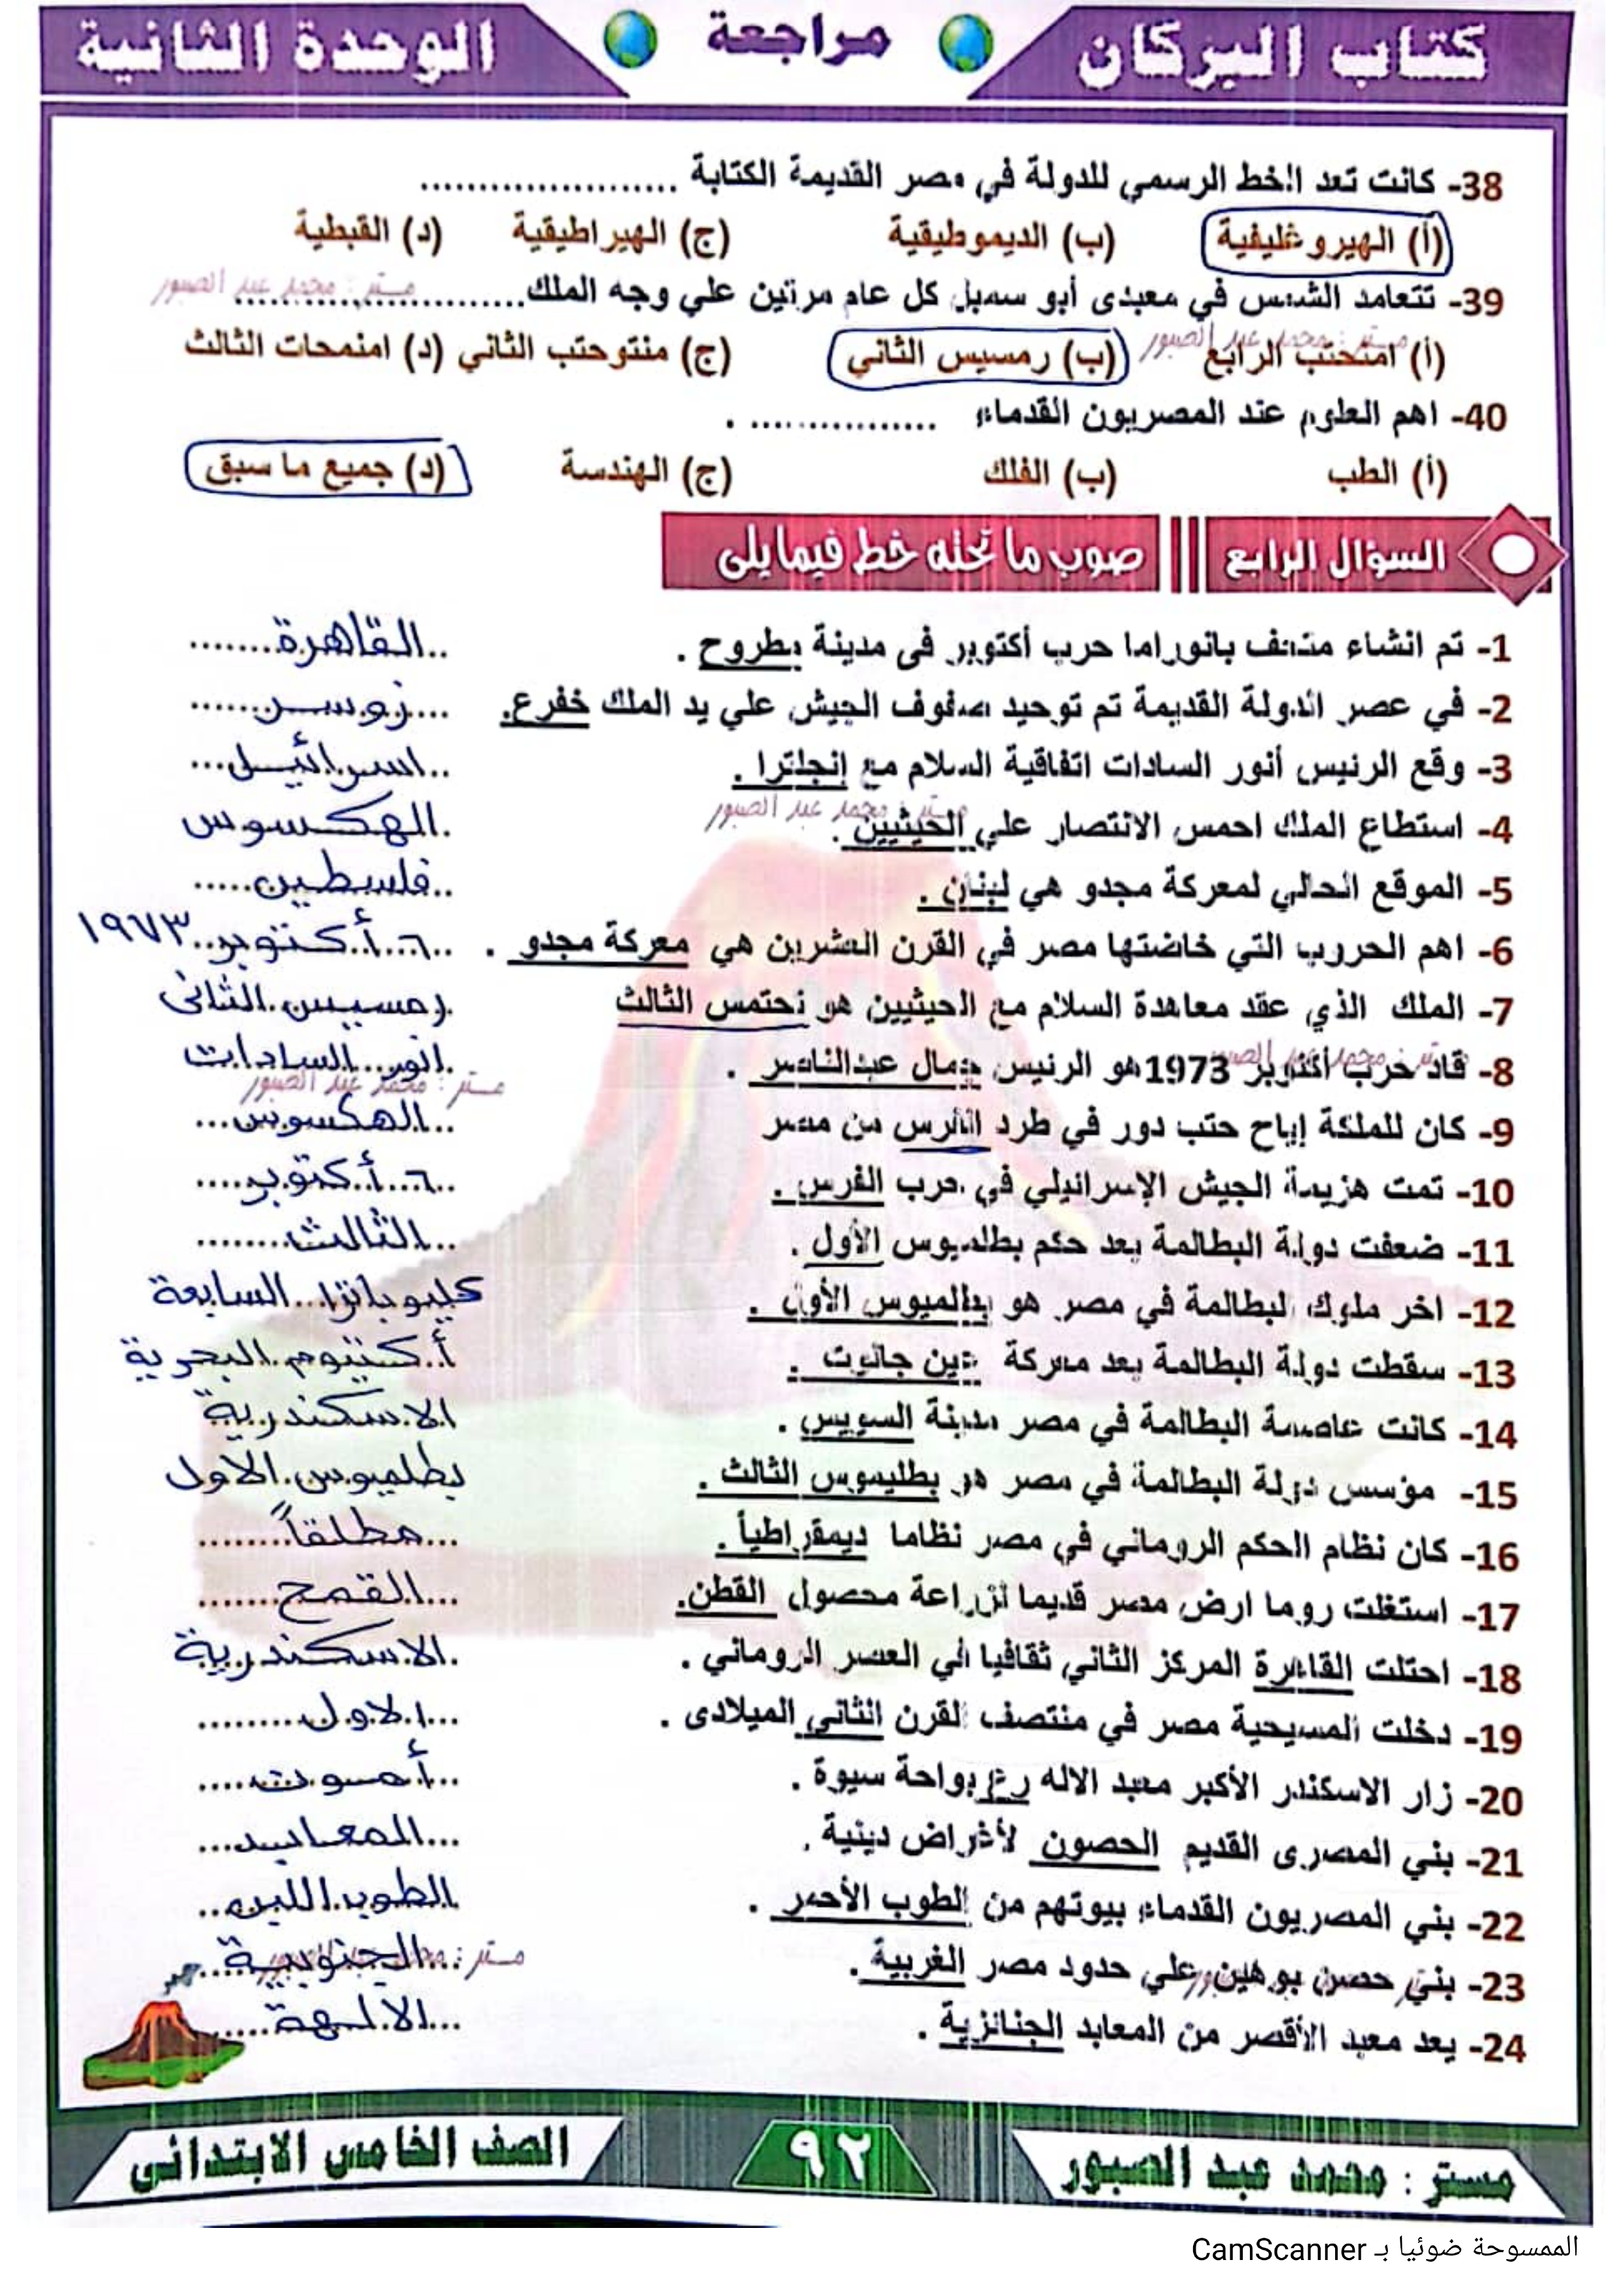 كتاب البركان مراجعة الوحدة الثانية
38- كانت تعد الخط الرسمي للدولة في مصر القديمة الكتابة ......................
(أ) الهيروغليفية (ب) الديموطيقية (ج) الهيراطيقية (د) القبطية
مستر : محمد عبد الصبور
39- تتعامد الشمس في معبدى أبو سمبل كل عام مرتين علي وجه الملك.........................
مستر : محمد عبد الصبور
(أ) امنحتب الرابع (ب) رمسيس الثاني (ج) منتوحتب الثاني (د) امنمحات الثالث
40- اهم العلوم عند المصريون القدماء ................ .
(أ) الطب (ب) الفلك (ج) الهندسة (د) جميع ما سبق
السؤال الرابع صوب ما تحته خط فيما يلى
1- تم انشاء متحف بانوراما حرب أكتوبر فى مدينة مطروح . ..القاهرة........
2- في عصر الدولة القديمة تم توحيد صفوف الجيش علي يد الملك خفرع. ....زوسر......
3- وقع الرئيس أنور السادات اتفاقية السلام مع إنجلترا . ..اسرائيل...
مستر : محمد عبد الصبور
4- استطاع الملك احمس الانتصار علي الحيثيين . .الهكسوس
5- الموقع الحالي لمعركة مجدو هي لبنان . ..فلسطين.....
6- اهم الحروب التي خاضتها مصر في القرن العشرين هي معركة مجدو . ..٦..أكتوبر..١٩٧٣
7- الملك الذي عقد معاهدة السلام مع الحيثيين هو تحتمس الثالث .رمسيس.الثانى
مستر : محمد عبد الصبور
8- قاد حرب أكتوبر 1973هو الرئيس جمال عبدالناصر . .انور...السادات
مستر : محمد عبد الصبور
9- كان للملكة إياح حتب دور في طرد الفرس من مصر ..الهكسوس...
10- تمت هزيمة الجيش الإسرائيلي في حرب الفرس . ..٦...أكتوبر.....
11- ضعفت دولة البطالمة بعد حكم بطلميوس الأول . ...الثالث........
12- اخر ملوك البطالمة في مصر هو بطلميوس الأول . كليوباترا...السابعة
13- سقطت دولة البطالمة بعد معركة عين جالوت . أكتيوم.البحرية
14- كانت عاصمة البطالمة في مصر مدينة السويس . الاسكندرية
15- مؤسس دولة البطالمة في مصر هو بطليموس الثالث . بطلميوس.الاول
16- كان نظام الحكم الروماني في مصر نظاما ديمقراطياً . ...مطلقاً........
17- استغلت روما ارض مصر قديما لزراعة محصول القطن. ...القمح.......
18- احتلت القاهرة المركز الثاني ثقافيا في العصر الروماني . .الاسكندرية
19- دخلت المسيحية مصر في منتصف القرن الثاني الميلادى . ...الاول.........
20- زار الاسكندر الأكبر معبد الاله رع بواحة سيوة . ...أمون.....
21- بني المصرى القديم الحصون لأغراض دينية . ...المعابد...
22- بني المصريون القدماء بيوتهم من الطوب الأحمر . الطوب.اللبن..
مستر : محمد عبد الصبور
23- بني حصن بوهين علي حدود مصر الغربية . ...الجنوبية...
24- يعد معبد الأقصر من المعابد الجنائزية . ...الالهة.....
مستر : محمد عبد الصبور ٩٢ الصف الخامس الابتدائى
الممسوحة ضوئيا بـ CamScanner